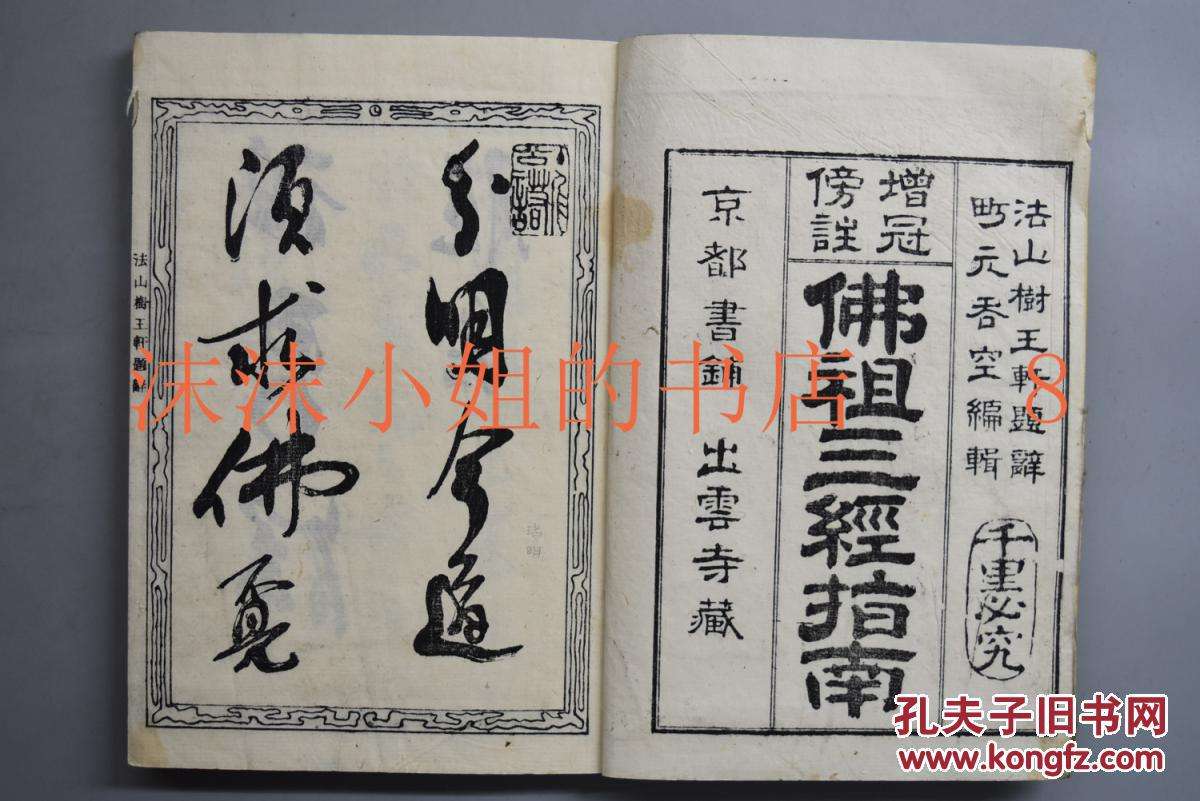 法山樹王軒題辭
町元吞空編輯
千里必究
增冠
傍註
佛祖三經指南
京都書鋪 出雲寺藏
分明今道
須求佛覓
法山樹王軒題
沫沫小姐的书店 8
孔夫子旧书网
www.kongfz.com